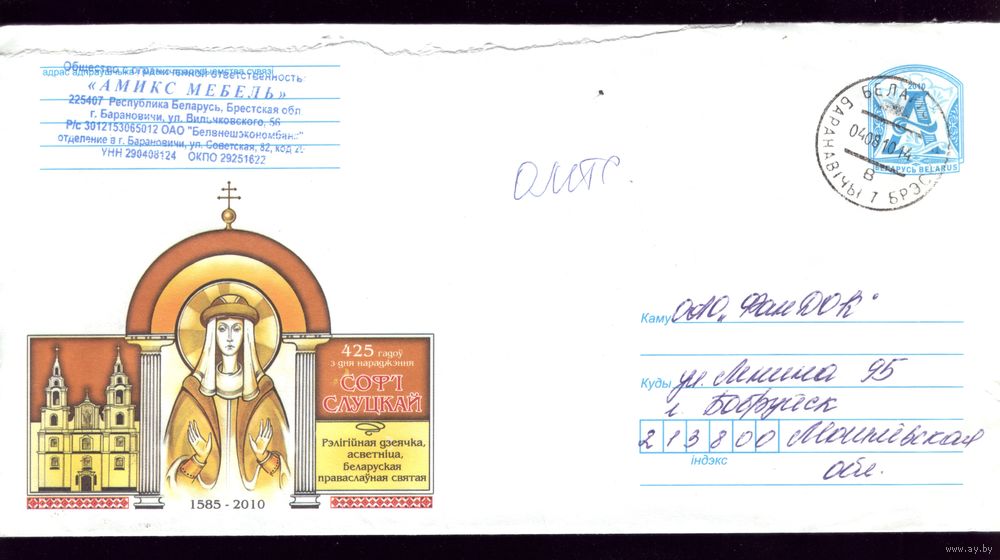 адрас адпраўшчыка і найменне прадпрыемства сувязі
Общество с ограниченной ответственностью
«АМИКС МЕБЕЛЬ»
225407 Республика Беларусь, Брестская обл
г. Барановичи, ул. Вильчковского, 56
Р/с 3012153065012 ОАО "Белвнешэкономбанк"
отделение в г. Барановичи, ул. Советская, 82, код
УНН 290408124 ОКПО 29251622
2010
А
БЕЛАРУСЬ BELARUS
БЕЛА
040810-14
В
БАРАНАВІЧЫ 1 БРЭС
ОМТС.
425 гадоў
з дня нараджэння
СОФ'І
СЛУЦКАЙ
Рэлігійная дзеячка,
асветніца,
Беларуская
праваслаўная святая
1585 - 2010
Каму ОАО „ФанДОК"
Куды ул. Ленина 95
г. Бобруйск
213800 Могилёвская
індэкс обл.
www.ay.by